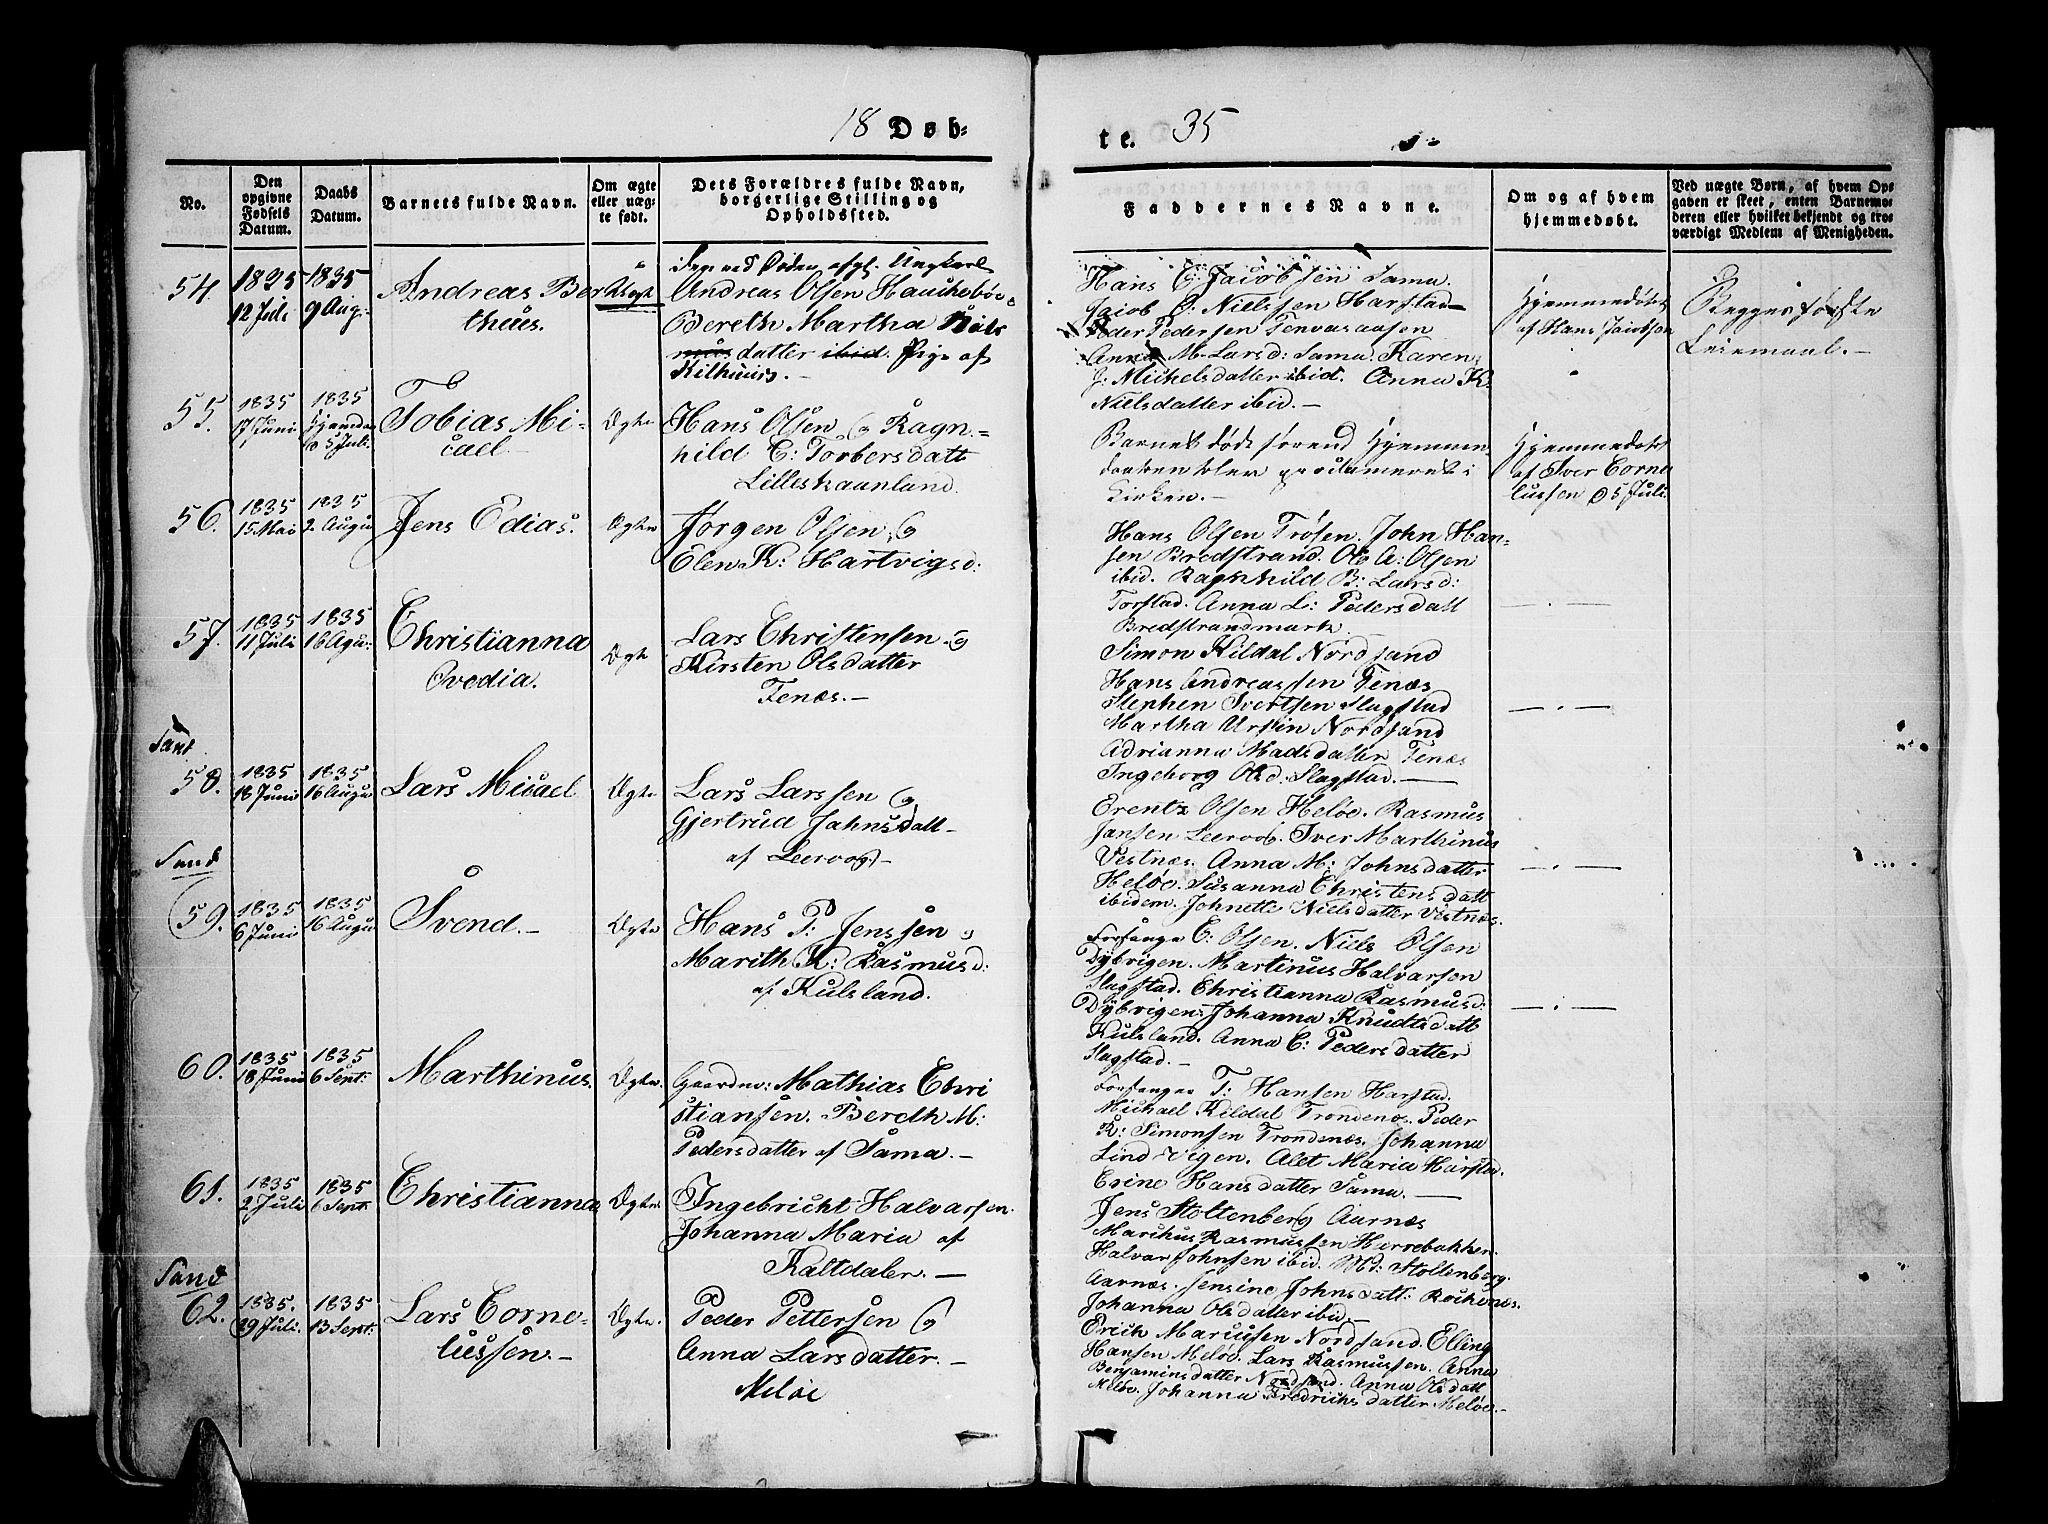 18 Døb-
te. 35
No.
Den opgivne Fødsels Datum.
Daabs Datum.
Barnets fulde Navn.
Om ægte eller uægte født.
Dets Forældres fulde Navn, borgerlige Stilling og Opholdssted.
Faddernes Navne.
Om og af hvem hjemmedøbt.
Ved uægte Børn, af hvem Opgaven er skeet, enten Barnemoderen eller hvilket bekjendt og troværdigt Medlem af Menigheden.
54. 1835 12 Juli 1835 9 Aug:
Andreas Ber
thus.
Uægt
Ungkarl
Andreas Olsen
Bereth Martha
datter ibid. Pige af
Hans C. Jacobsen Sama.
Jacob C. Nielssen Harstad
Peder Pedersen
Anna M. Larsd: Sama. Karen
J. Michelsdatter ibid. Anna K.
Nielsdatter ibid. —
Hjemmedøbt
af Hans Jacobsen
Begges første
Leiermaal. —
55. 1835 17 Juni 1835 5 Juli.
Tobias Mi-
cael
Ægte
Hans Olsen og Ragn-
hild C: Torbersdatt
Lilleskaanland.
Barnet døde førend Hjemme
daaben blev proclameret i
Kirken. —
Hjemmedøbt
af Iver Corne
liussen 5 Juli
56. 1835 15 Mai 1835 2 Augu
Jens Edias.
Ægte
Jørgen Olsen og
Elen K: Hartvigsd:
Hans Olsen Trøsen. John Han-
sen Bredstrand. Ole A: Olsen
ibid. Ragnhild B: Larsd:
Torstad. Anna L: Pedersdatt
Bredstrandmark
57. 1835 11 Juli 1835 16 Agu:
Christianna
Ovedia.
Ægte
Lars Christensen og
Kirsten Olsdatter
Fenæs. —
Simon Kildal Nordsand
Hans Andreassen Fenæs
Stephen Ivertsen Slagstad
Martha Ursin Nordsand
Adrianna Madsdatter Fenæs
Ingeborg Olsd. Slagstad. —
Sand
58. 1835 18 Juni 1835 16 Augu
Lars Micael
Ægte
Lars Larssen og
Gjertrud Jahnsdatt
af Leervog —
Erentz Olsen Meløe. Rasmus
Jansen Leervog. Iver Marthinus
Vestnæs. Anna M: Johnsdatter
Meløe. Susanna Christensdatt
ibidem. Johnette Nielsdatter Vestnæs.
Sand
59. 1835 6 Juni 1835 16 Augu
Svend. —
Ægte
Hans P: Jenssen og
Marith K: Rasmusd:
af Kulsland.
Forsanger C: Olsen. Niels Olsen
Dybvigen. Martinus Halvarsen
Slagstad. Christianna Rasmusd:
Dybvigen. Johanna Knudtsdatt
Kulsland. Anna C: Pedersdatter
Slagstad. —
60. 1835 18 Juni 1835 6 Sept:
Marthinus.
Ægte.
Gaardm: Mathias Chri
stiansen. Bereth M:
Pedersdatter af Sama. —
Forsanger T: Hansen Harstad.
Michael Kildal Trondenæs. Peder
R: Simonsen Trondenæs. Johanna
Lind Vigen. Alet Maria Harstad.
Erine Hansdatter Sama. —
61. 1835 2 Juli 1835 6 Sept:
Christianna
Ægte
Ingebricht Halvarsen.
Johanna Maria af
Kaltdaler. —
Jens Stoltenberg Aarnæs
Marchus Rasmussen Harrebakken.
Halvar Johnsen ibid. Md: Stoltenberg.
Aarnæs. Jensine Johnsdatt:
Johanna Olsdatter ibid. —
Sand
62. 1835. 29 Juli. 1835 13 Sept:
Lars Corne-
liussen. —
Ægte.
Peder Pettersen og
Anna Larsdatter. —
Meløe
Erich Marcussen Nordsand. Elling
Hansen Meløe. Lars Rasmussen. Anna
Benjaminsdatter Nordsand. Anna Olsdatt
Meløe. Johanna Fredrichsdatter Meløe. —